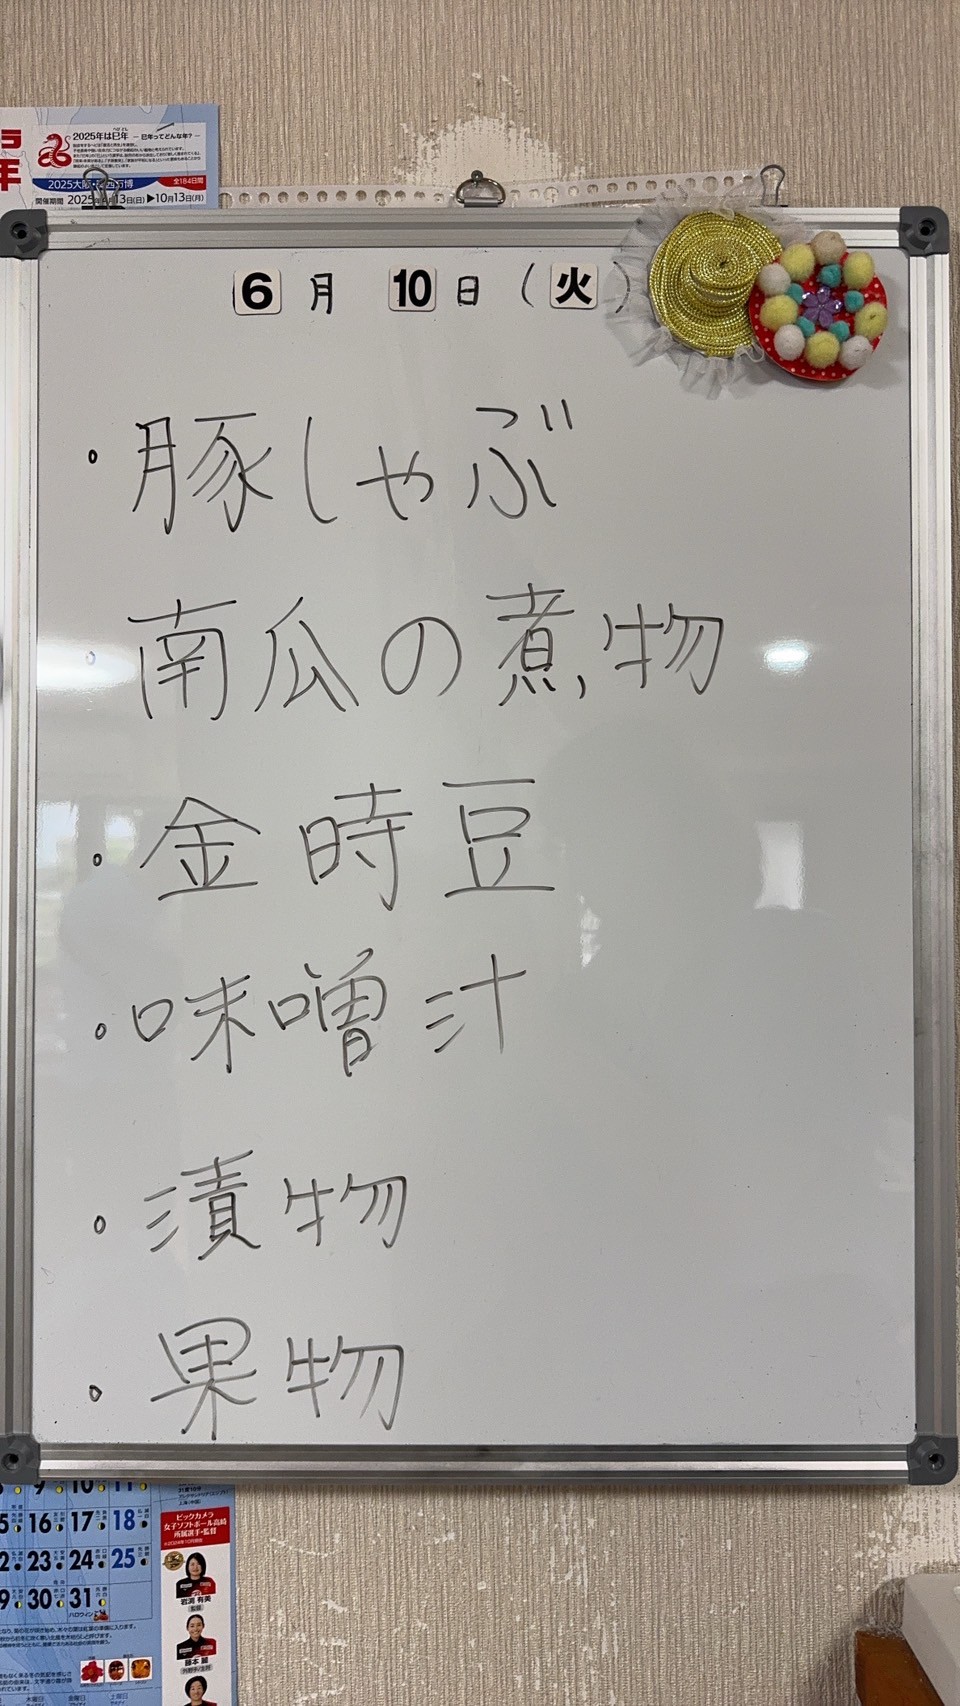 2025年は巳年 ― 巳年ってどんな年? ―
2025大阪
万博
全184日間
開催期間
13日(日)▶10月13日(月)
6月 10日(火)
・豚しゃぶ
・南瓜の煮物
・金時豆
・味噌汁
・漬物
・果物
9 10 11
16 17 18
23 24 25
30 31
ハロウィン
ビックカメラ
女子ソフトボール高崎
所属選手・監督
岩渕 有美
監督
藤本 麗
木曜日 金曜日 土曜日